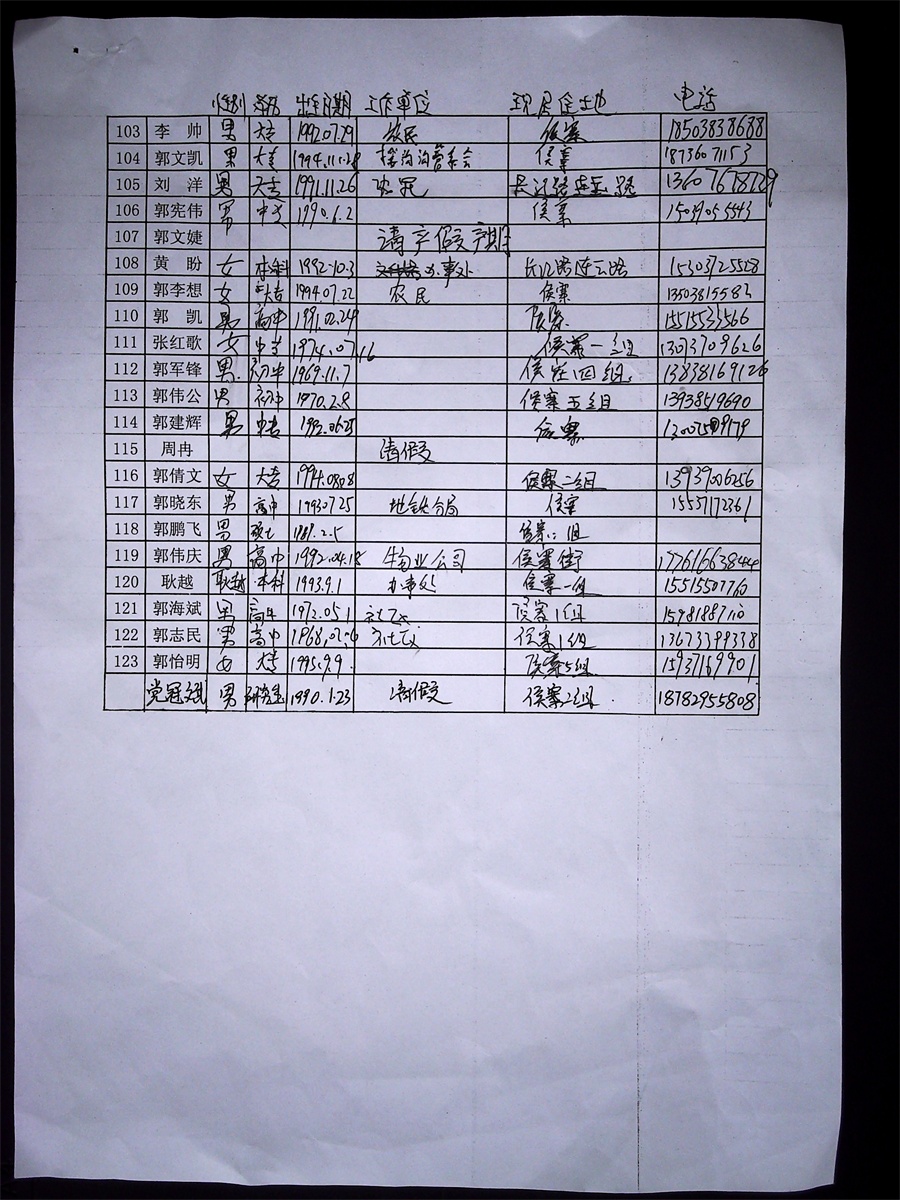 性别 学历 出生日期 工作单位 现居住地 电话
103 李帅 男 大专 1992.07.29 农民 侯寨 18503838688
104 郭文凯 男 大专 1994.11.28 管委会 侯寨 18736071153
105 刘洋 男 大专 1991.11.26 农民
106 郭宪伟 男 中专 1990.6.2 侯寨 15039055543
107 郭文婕 请产假
108 黄盼 女 本科 1992.10.3 办事处 长江路连云路 15303725528
109 郭李想 女 大专 1994.07.22 农民 侯寨 13503815583
110 郭凯 男 高中 1991.02.24 侯寨 15515533566
111 张红歌 女 中专 1974.07.16 侯寨一组 13073709626
112 郭军锋 男 初中 1969.11.7 侯寨四组 13838169126
113 郭伟公 男 初中 1970.2.8 侯寨五组 13938519690
114 郭建辉 男 中专 侯寨
115 周冉 请假
116 郭倩文 女 大专 1994.0808 侯寨二组 13939006256
117 郭晓东 男 高中 19930725 地铁分局 侯寨 15557172361
118 郭鹏飞 男 硕士 1989.2.5 侯寨二组
119 郭伟庆 男 高中 1992.04.18 物业公司 侯寨街
120 耿越 耿越 本科 1993.9.1 办事处 侯寨一组 15515507760
121 郭海斌 男 高中 1972.05.1 社区 侯寨1组 15981887110
122 郭志民 男 高中 社区 侯寨1组 13673399338
123 郭怡明 女 大专 1995.9.9. 侯寨5组 15937169901
党冠斌 男 研究生 1990.1.23 请假 侯寨2组 18782955808